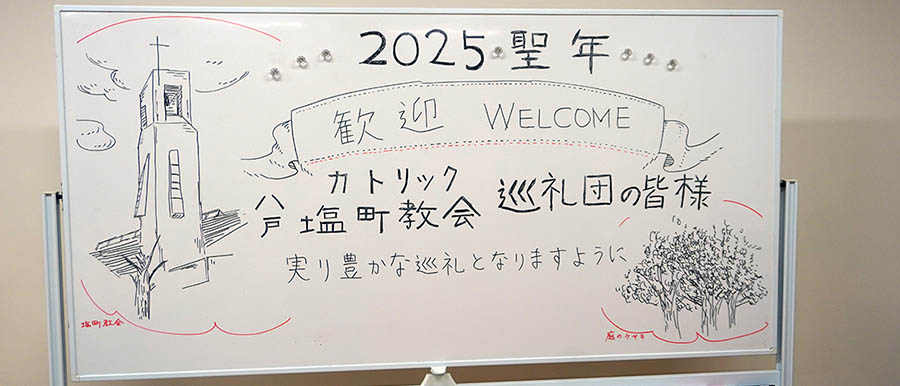 2025 聖年
歓迎 WELCOME
カトリック
八戸 塩町教会 巡礼団の皆様
実り豊かな巡礼となりますように
塩町教会
庭のケヤキ